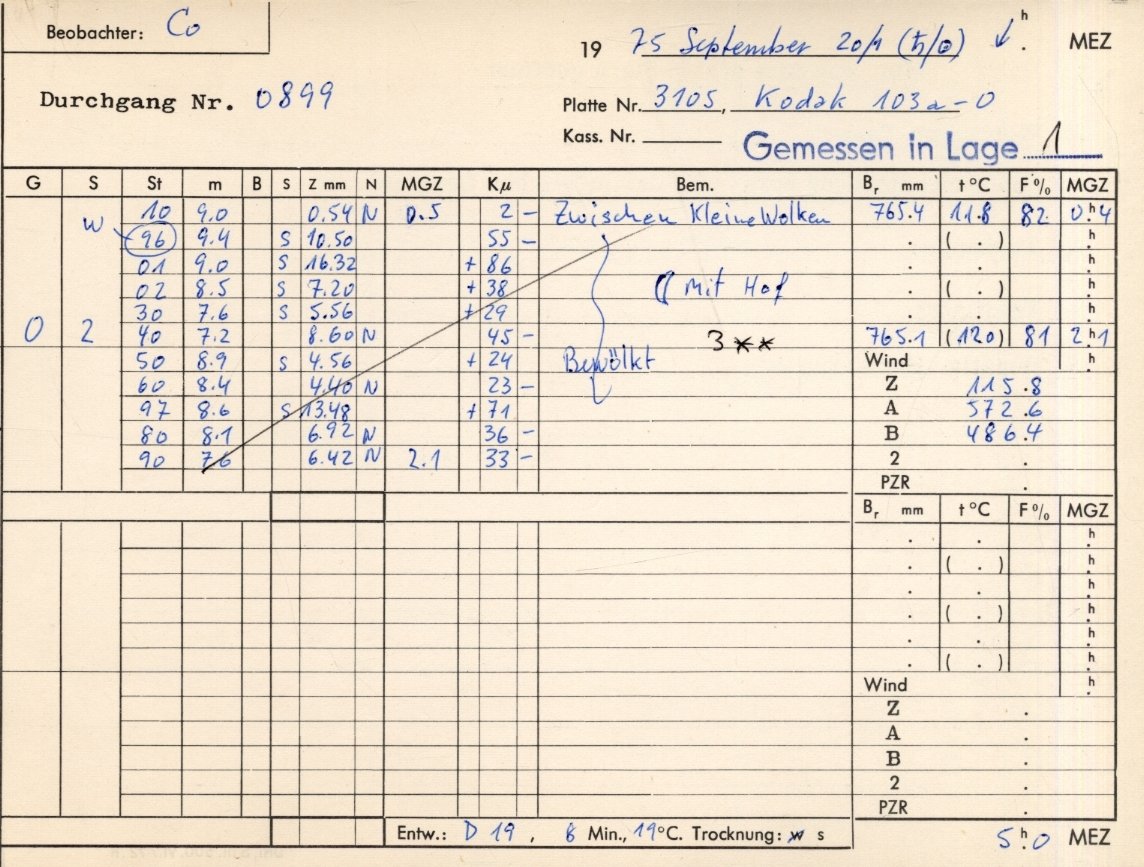 Beobachter: Co
19 75 September 20/1 (ħ/⊙) h . MEZ
Durchgang Nr. 0899
Platte Nr. 3105, Kodak 103a-O
Kass. Nr.
Gemessen in Lage 1
G S St m B S Z mm N MGZ Kμ Bem. Br mm t °C F % MGZ
10 9.0 0.54 N 0.5 2 - Zwischen Kleine Wolken 765.4 11.8 82 0h.4
W 96 9.4 S 10.50 55 - . ( . ) h.
01 9.0 S 16.32 + 86 . . h.
02 8.5 S 7.20 + 38 ☾ mit Hof . ( . ) h.
30 7.6 S 5.56 + 29 . . h.
0 2 40 7.2 8.60 N 45 - 3 ** 765.1 (12.0) 81 2h.1
50 8.9 S 4.56 + 24 Bewölkt Wind h.
60 8.4 4.40 N 23 - Z 115.8
97 8.6 S 13.48 + 71 A 572.6
80 8.1 6.92 N 36 - B 486.4
90 7.6 6.42 N 2.1 33 - 2 .
PZR .
Br mm t °C F % MGZ
. . h.
. ( . ) h.
. . h.
. ( . ) h.
. . h.
. ( . ) h.
Wind h.
Z .
A .
B .
2 .
PZR .
Entw.: D 19, 8 Min., 19°C. Trocknung: w s
5h.0 MEZ